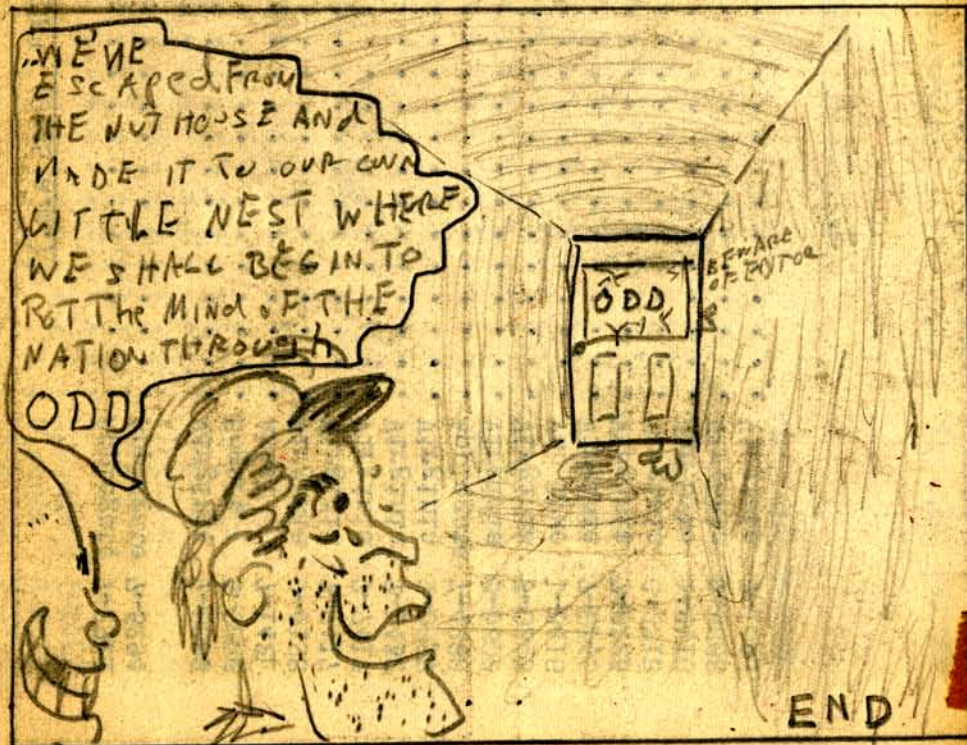 ..WE'VE
EscAped From
THE NUTHOUSE ANd
MADE IT TO OUR OWN
LITTLE NEST WHERE
WE SHALL BEGIN TO
ROT The Mind oF THE
NATION THROUGH
ODD
ODD
BEWARE
OF EDITOR
END